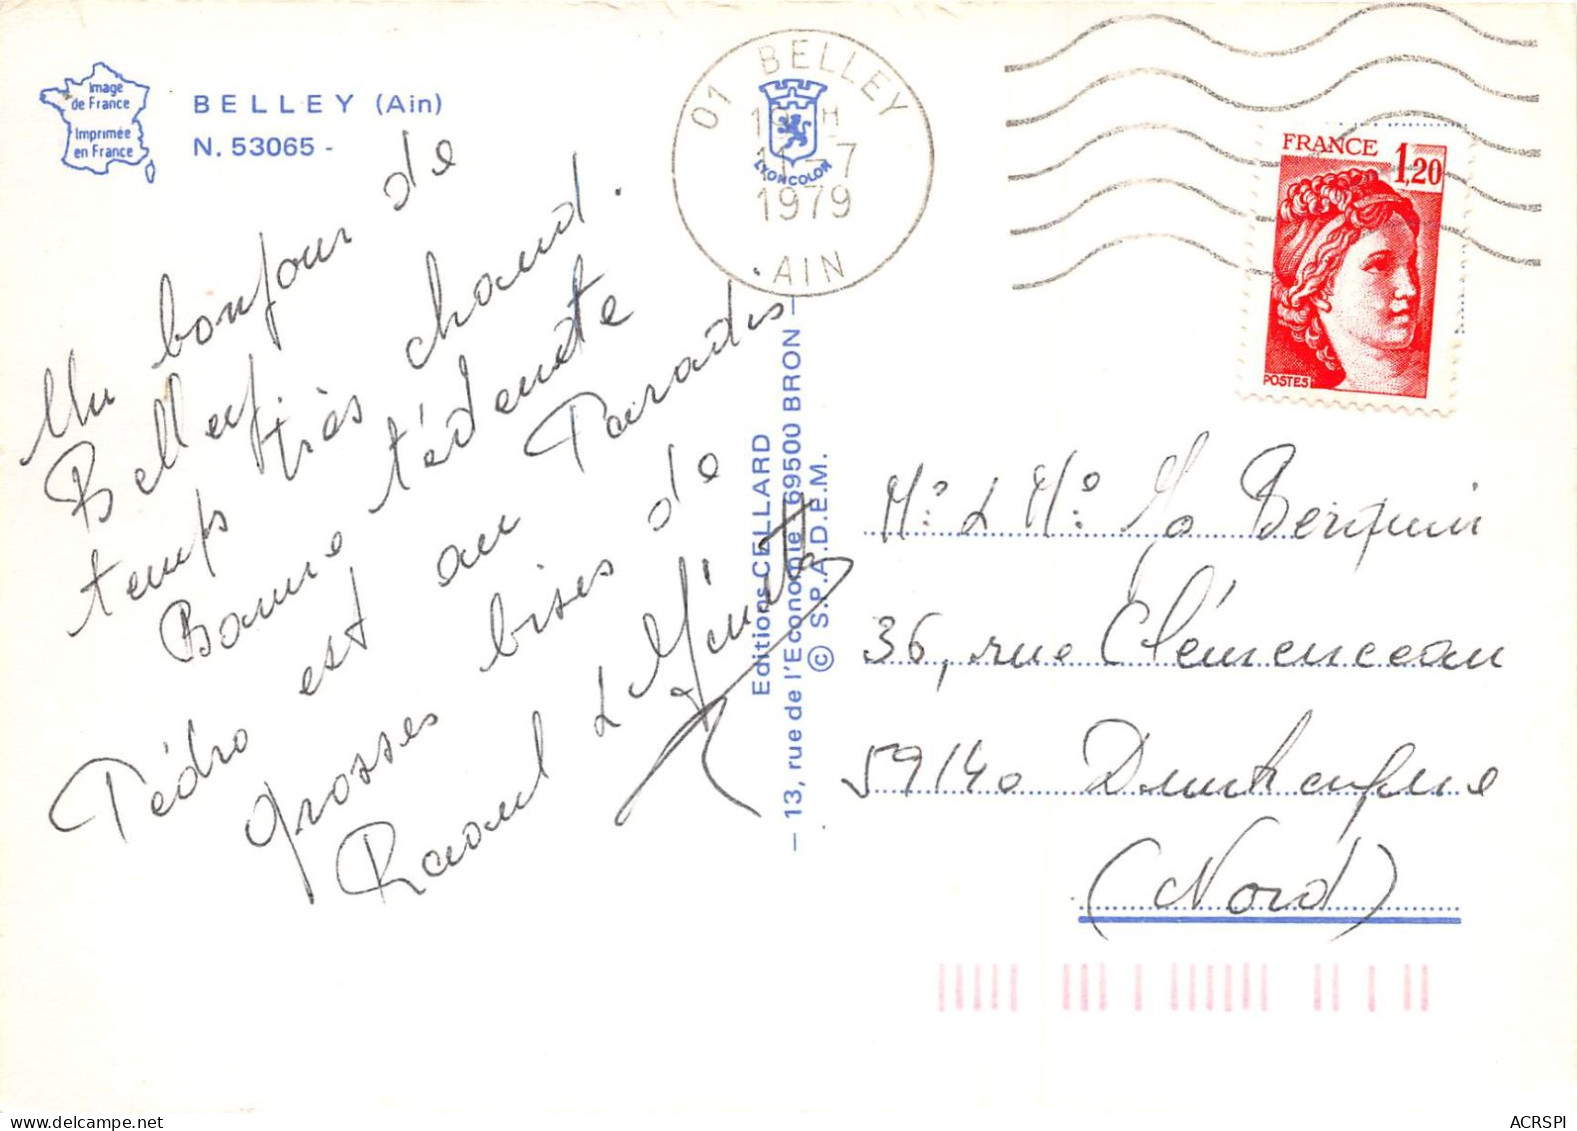 Image
de France
Imprimée
en France
BELLEY (Ain)
N. 53065 -
Un bonjour de
Belley, très chaud.
temps
Bonne
Pédro est au Paradis
grosses bises de
Raoul &
Editions CELLARD
— 13, rue de l'Economie 69500 BRON —
© S.P.A.D.E.M.
01 BELLEY
11-7
1979
AIN
LYONCOLOR
FRANCE 1,20
POSTES
Mr & Me
36, rue Clémenceau
59140 Dunkerque
(Nord)
ACRSPI